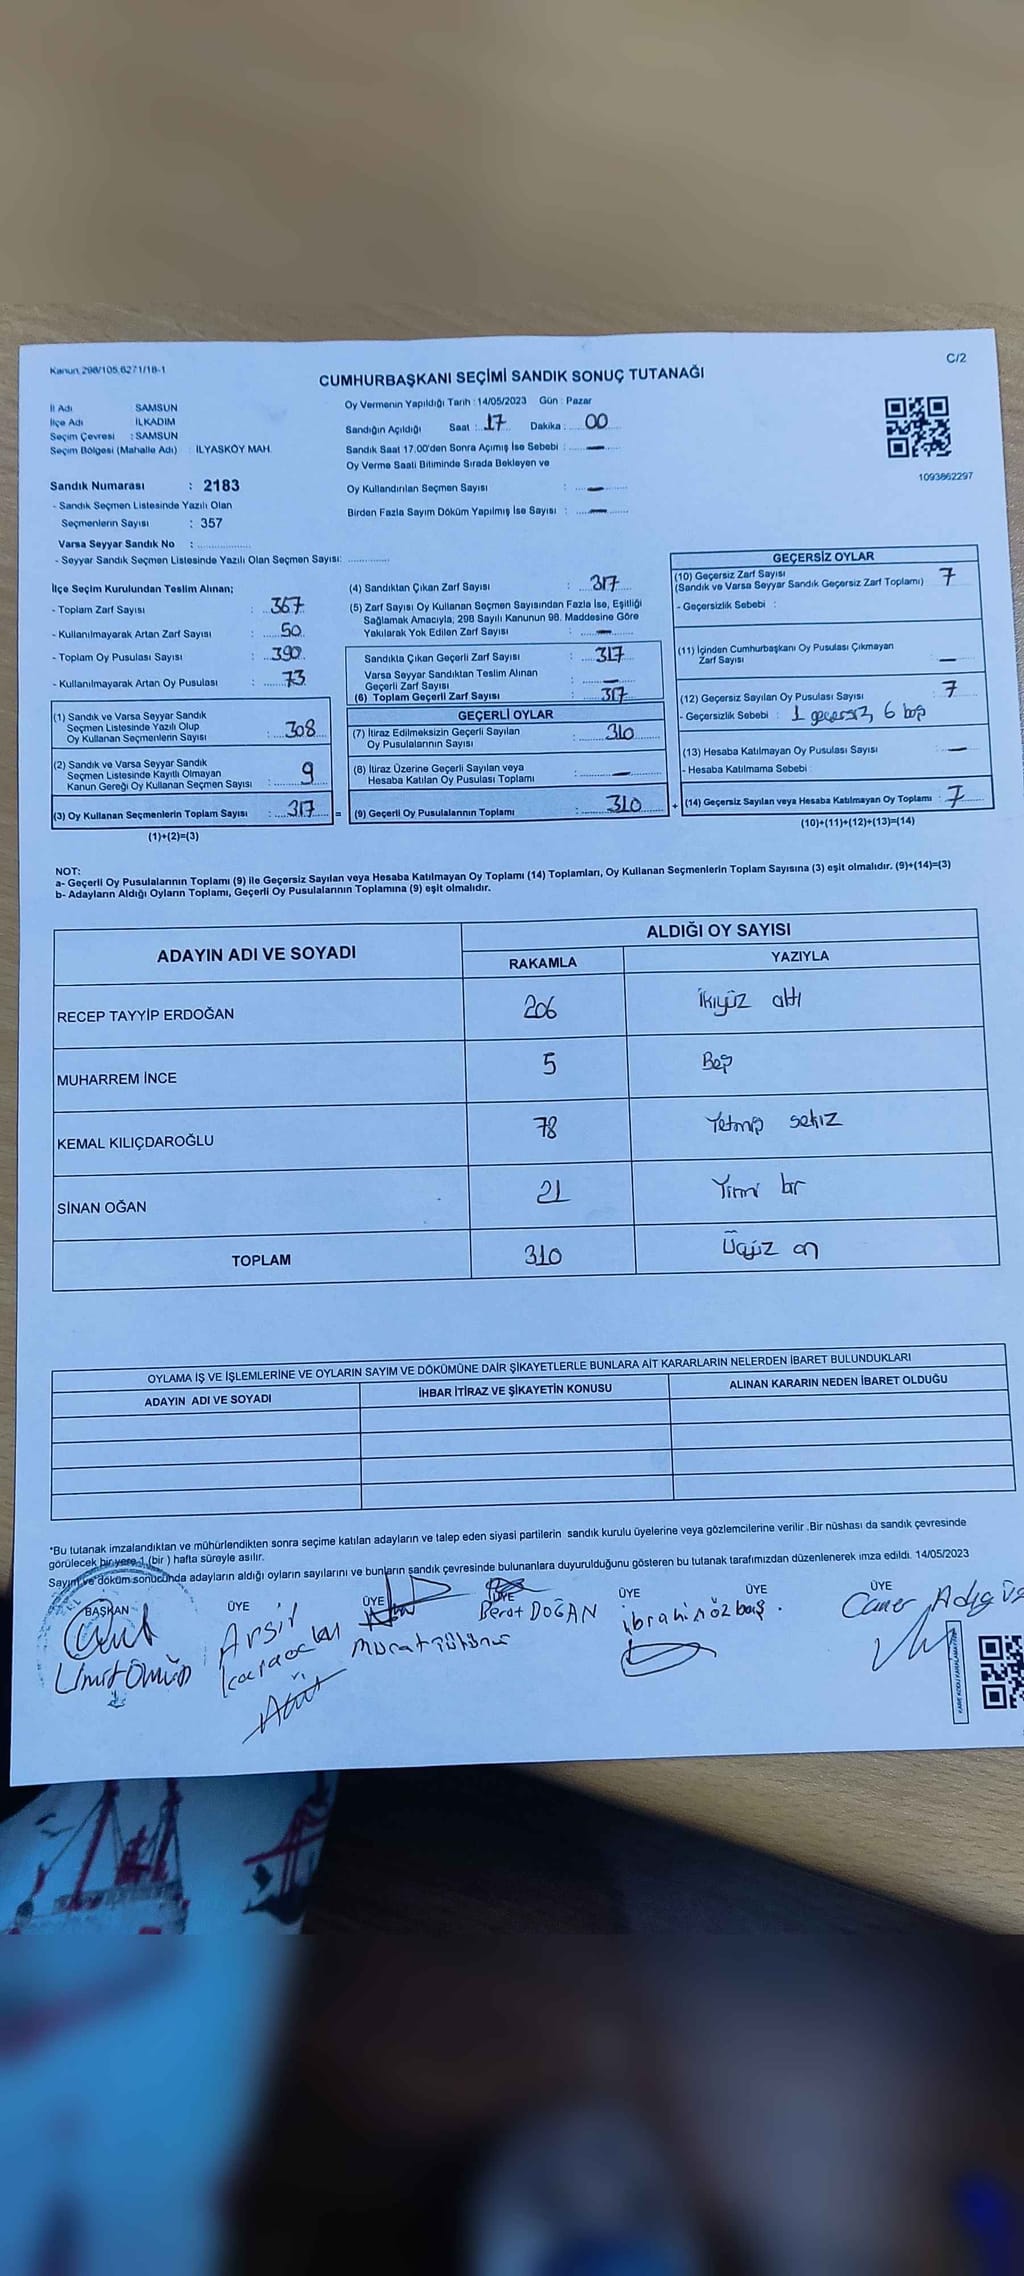 Kanun 298/105,6271/18-1
C/2
CUMHURBAŞKANI SEÇİMİ SANDIK SONUÇ TUTANAĞI
İl Adı SAMSUN
İlçe Adı İLKADIM
Seçim Çevresi : SAMSUN
Seçim Bölgesi (Mahalle Adı) : İLYASKÖY MAH.
Sandık Numarası : 2183
- Sandık Seçmen Listesinde Yazılı Olan
Seçmenlerin Sayısı : 357
Varsa Seyyar Sandık No :
- Seyyar Sandık Seçmen Listesinde Yazılı Olan Seçmen Sayısı:
Oy Vermenin Yapıldığı Tarih : 14/05/2023 Gün : Pazar
Sandığın Açıldığı Saat : 17 Dakika : 00
Sandık Saat 17.00'den Sonra Açımış İse Sebebi : —
Oy Verme Saati Bitiminde Sırada Bekleyen ve
Oy Kullandırılan Seçmen Sayısı : —
Birden Fazla Sayım Döküm Yapılmış İse Sayısı : —
1093862297
İlçe Seçim Kurulundan Teslim Alınan;
- Toplam Zarf Sayısı : 367
- Kullanılmayarak Artan Zarf Sayısı : 50
- Toplam Oy Pusulası Sayısı : 390
- Kullanılmayarak Artan Oy Pusulası : 73
(1) Sandık ve Varsa Seyyar Sandık
Seçmen Listesinde Yazılı Olup
Oy Kullanan Seçmenlerin Sayısı : 308
(2) Sandık ve Varsa Seyyar Sandık
Seçmen Listesinde Kayıtlı Olmayan
Kanun Gereği Oy Kullanan Seçmen Sayısı : 9
(3) Oy Kullanan Seçmenlerin Toplam Sayısı : 317 =
(1)+(2)=(3)
(4) Sandıktan Çıkan Zarf Sayısı : 317
(5) Zarf Sayısı Oy Kullanan Seçmen Sayısından Fazla İse, Eşitliği
Sağlamak Amacıyla, 298 Sayılı Kanunun 98. Maddesine Göre
Yakılarak Yok Edilen Zarf Sayısı : —
Sandıkla Çıkan Geçerli Zarf Sayısı : 317
Varsa Seyyar Sandıktan Teslim Alınan
Geçerli Zarf Sayısı : —
(6) Toplam Geçerli Zarf Sayısı : 317
GEÇERLİ OYLAR
(7) İtiraz Edilmeksizin Geçerli Sayılan
Oy Pusulalarının Sayısı : 310
(8) İtiraz Üzerine Geçerli Sayılan veya
Hesaba Katılan Oy Pusulası Toplamı : —
(9) Geçerli Oy Pusulalarının Toplamı : 310 +
GEÇERSİZ OYLAR
(10) Geçersiz Zarf Sayısı 7
(Sandık ve Varsa Seyyar Sandık Geçersiz Zarf Toplamı)
- Geçersizlik Sebebi :
(11) İçinden Cumhurbaşkanı Oy Pusulası Çıkmayan
Zarf Sayısı —
(12) Geçersiz Sayılan Oy Pusulası Sayısı 7
- Geçersizlik Sebebi : 1 geçersiz, 6 boş
(13) Hesaba Katılmayan Oy Pusulası Sayısı —
- Hesaba Katılmama Sebebi
(14) Geçersiz Sayılan veya Hesaba Katılmayan Oy Toplamı : 7
(10)+(11)+(12)+(13)=(14)
NOT:
a- Geçerli Oy Pusulalarının Toplamı (9) ile Geçersiz Sayılan veya Hesaba Katılmayan Oy Toplamı (14) Toplamları, Oy Kullanan Seçmenlerin Toplam Sayısına (3) eşit olmalıdır. (9)+(14)=(3)
b- Adayların Aldığı Oyların Toplamı, Geçerli Oy Pusulalarının Toplamına (9) eşit olmalıdır.
ADAYIN ADI VE SOYADI
ALDIĞI OY SAYISI
RAKAMLA YAZIYLA
RECEP TAYYİP ERDOĞAN 206 İkiyüz altı
MUHARREM İNCE 5 Beş
KEMAL KILIÇDAROĞLU 78 Yetmiş sekiz
SİNAN OĞAN 21 Yirmi bir
TOPLAM 310 Üçyüz on
OYLAMA İŞ VE İŞLEMLERİNE VE OYLARIN SAYIM VE DÖKÜMÜNE DAİR ŞİKAYETLERLE BUNLARA AİT KARARLARIN NELERDEN İBARET BULUNDUKLARI
ADAYIN ADI VE SOYADI İHBAR İTİRAZ VE ŞİKAYETİN KONUSU ALINAN KARARIN NEDEN İBARET OLDUĞU
*Bu tutanak imzalandıktan ve mühürlendikten sonra seçime katılan adayların ve talep eden siyasi partilerin sandık kurulu üyelerine veya gözlemcilerine verilir .Bir nüshası da sandık çevresinde
görülecek bir yere 1 (bir ) hafta süreyle asılır.
Sayım ve döküm sonucunda adayların aldığı oyların sayılarını ve bunların sandık çevresinde bulunanlara duyurulduğunu gösteren bu tutanak tarafımızdan düzenlenerek imza edildi. 14/05/2023
BAŞKAN ÜYE ÜYE ÜYE ÜYE ÜYE ÜYE
Berat DOĞAN
ibrahim özbaş
Caner